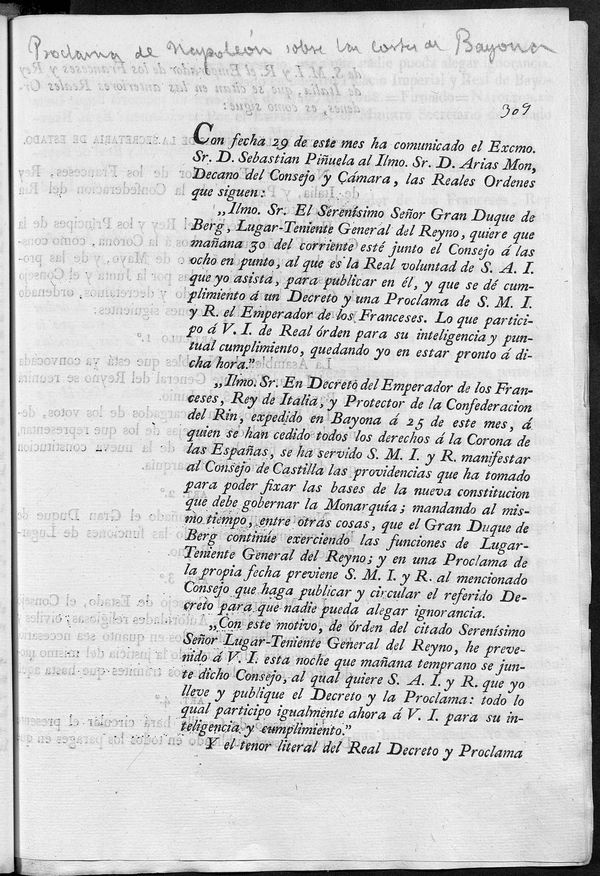 Proclama de Napoleón sobre las Cortes de Bayona
309
Con fecha 29 de este mes ha comunicado el Excmo.
Sr. D. Sebastian Piñuela al Ilmo. Sr. D. Arias Mon,
Decano del Consejo y Cámara, las Reales Ordenes
que siguen:
„Ilmo. Sr. El Serenísimo Señor Gran Duque de
Berg, Lugar-Teniente General del Reyno, quiere que
mañana 30 del corriente esté junto el Consejo á las
ocho en punto, al que es la Real voluntad de S. A. I.
que yo asista, para publicar en él, y que se dé cum-
plimiento á un Decreto y una Proclama de S. M. I.
y R. el Emperador de los Franceses. Lo que partici-
po á V. I. de Real órden para su inteligencia y pun-
tual cumplimiento, quedando yo en estar pronto á di-
cha hora."
„Ilmo. Sr. En Decreto del Emperador de los Fran-
ceses, Rey de Italia, y Protector de la Confederacion
del Rin, expedido en Bayona á 25 de este mes, á
quien se han cedido todos los derechos á la Corona de
las Españas, se ha servido S. M. I. y R. manifestar
al Consejo de Castilla las providencias que ha tomado
para poder fixar las bases de la nueva constitucion
que debe gobernar la Monarquía; mandando al mis-
mo tiempo, entre otras cosas, que el Gran Duque de
Berg continúe exerciendo las funciones de Lugar-
Teniente General del Reyno; y en una Proclama de
la propia fecha previene S. M. I. y R. al mencionado
Consejo que haga publicar y circular el referido De-
creto para que nadie pueda alegar ignorancia.
„Con este motivo, de órden del citado Serenísimo
Señor Lugar-Teniente General del Reyno, he preve-
nido á V. I. esta noche que mañana temprano se jun-
te dicho Consejo, al qual quiere S. A. I. y R. que yo
lleve y publique el Decreto y la Proclama: todo lo
qual participo igualmente ahora á V. I. para su in-
teligencia y cumplimiento."
Y el tenor literal del Real Decreto y Proclama